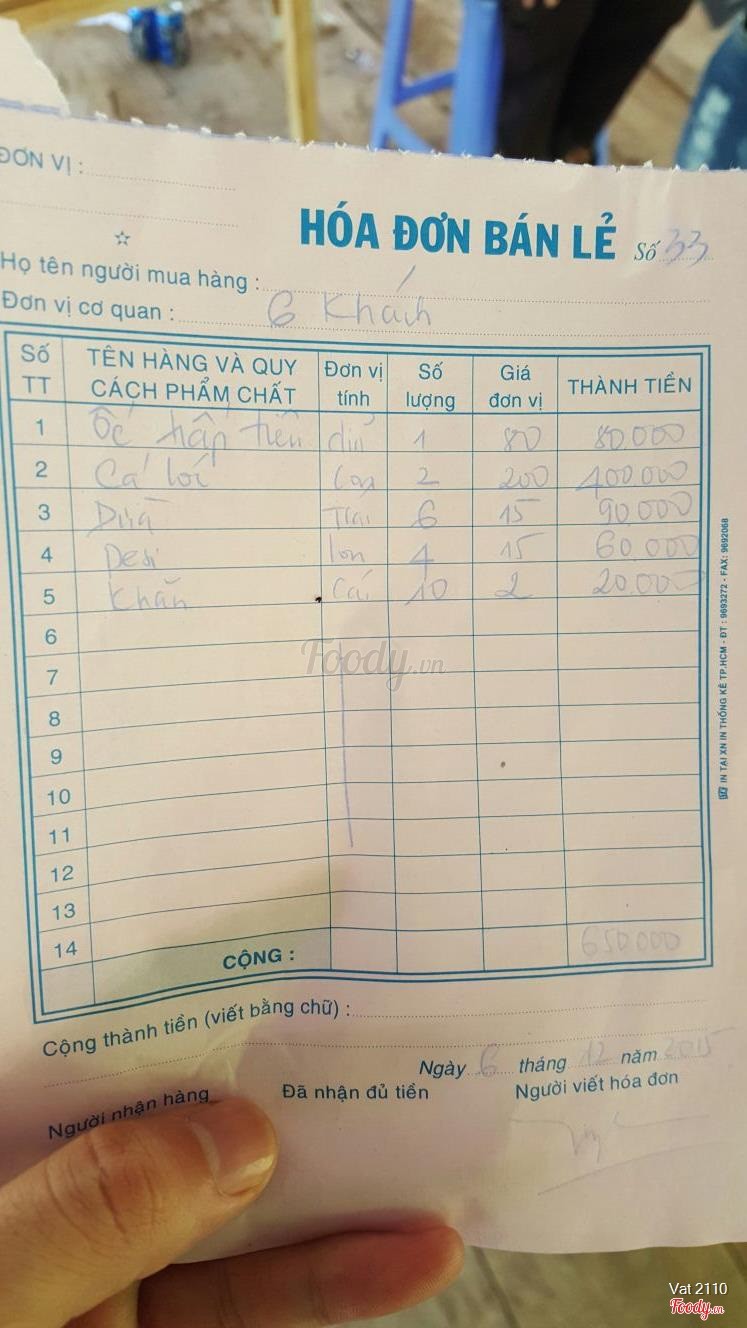 ĐƠN VỊ :
HÓA ĐƠN BÁN LẺ Số 33
Họ tên người mua hàng :
Đơn vị cơ quan : 6 Khách
Số TT TÊN HÀNG VÀ QUY CÁCH PHẨM CHẤT Đơn vị tính Số lượng Giá đơn vị THÀNH TIỀN
1 Ốc hấp tiêu 1 80 80.000
2 Cá lới Con 2 200 400.000
3 Dừa Trái 6 15 90.000
4 lon 4 15 60.000
5 Khăn Cái 10 2 20.000
6
7
8
9
10
11
12
13
14
CỘNG : 650.000
Cộng thành tiền (viết bằng chữ) :
Ngày 6 tháng 12 năm 2015
Người nhận hàng Đã nhận đủ tiền Người viết hóa đơn
IN TẠI XN IN THỐNG KÊ TP.HCM - ĐT : 9693272 - FAX: 9692068
Foody.vn
Vat 2110
Foody.vn